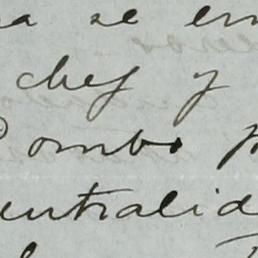 a se en
chef y
Pombo p
entralid